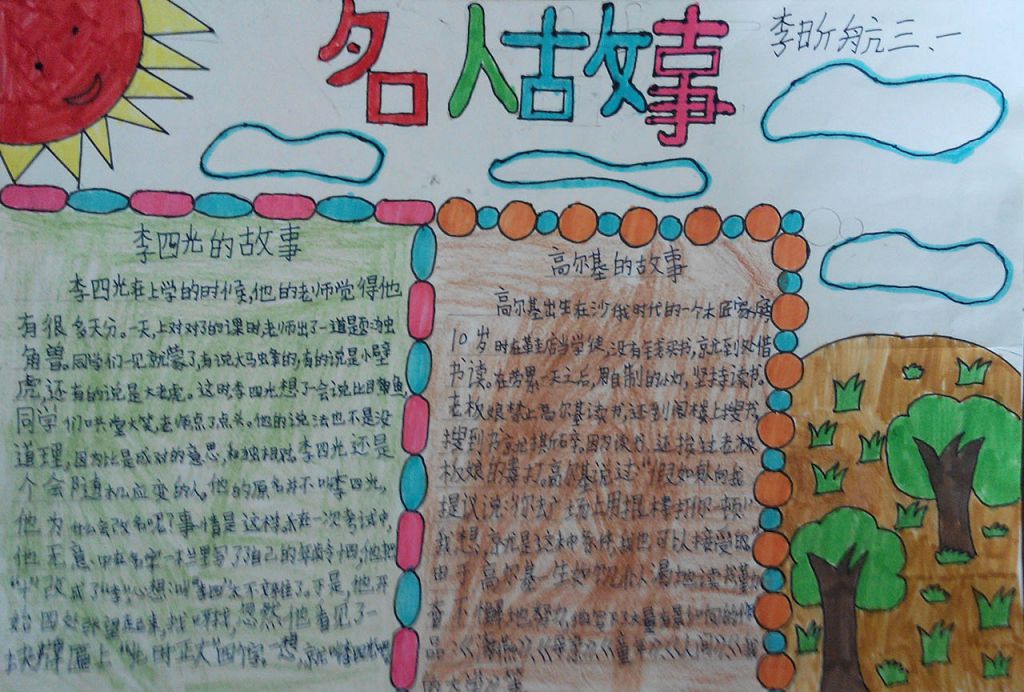 名人古故事
李昕航 三、一
李四光的故事
李四光在上学的时候,他的老师觉得他
有很多天分。一天上对对子的课时老师出了一道题:独
角兽。同学们一见就蒙了,有说大马虫的,有的说是小壁
虎,还有的说是大老虎。这时,李四光想了一会说比目鱼,
同学们哄堂大笑,老师点了点头。他的说法也不是没
道理,因为比是成对的意思,和独相对。李四光还是
个会随机应变的人。他的原名并不叫李四光,
他为什么会改名呢?事情是这样,在一次考试中,
他无意中在名字一栏里写了自己的年龄十四,他把
"十"改成了"李"心想叫"李四"太不好了。于是,他开
始四处张望起来,找呀找,忽然他看见了一
块牌匾上"光明正大"四个字。一想,就叫李四光吧
高尔基的故事
高尔基出生在沙俄时代的一个木匠家庭
10岁时在鞋店当学徒,没有钱买书,就到处借
书读。在劳累一天之后,用自制的小灯,坚持读书。
老板娘禁止高尔基读书,还到阁楼上搜书,
搜到书就撕碎。因为读书,还挨过老板
板娘的毒打。高尔基说过:"假如有人向我
提议说:'你去广场上用棍棒打你一顿!'
我想,就是这种条件,我也可以接受的
由于高尔基一生如饥似渴地读书